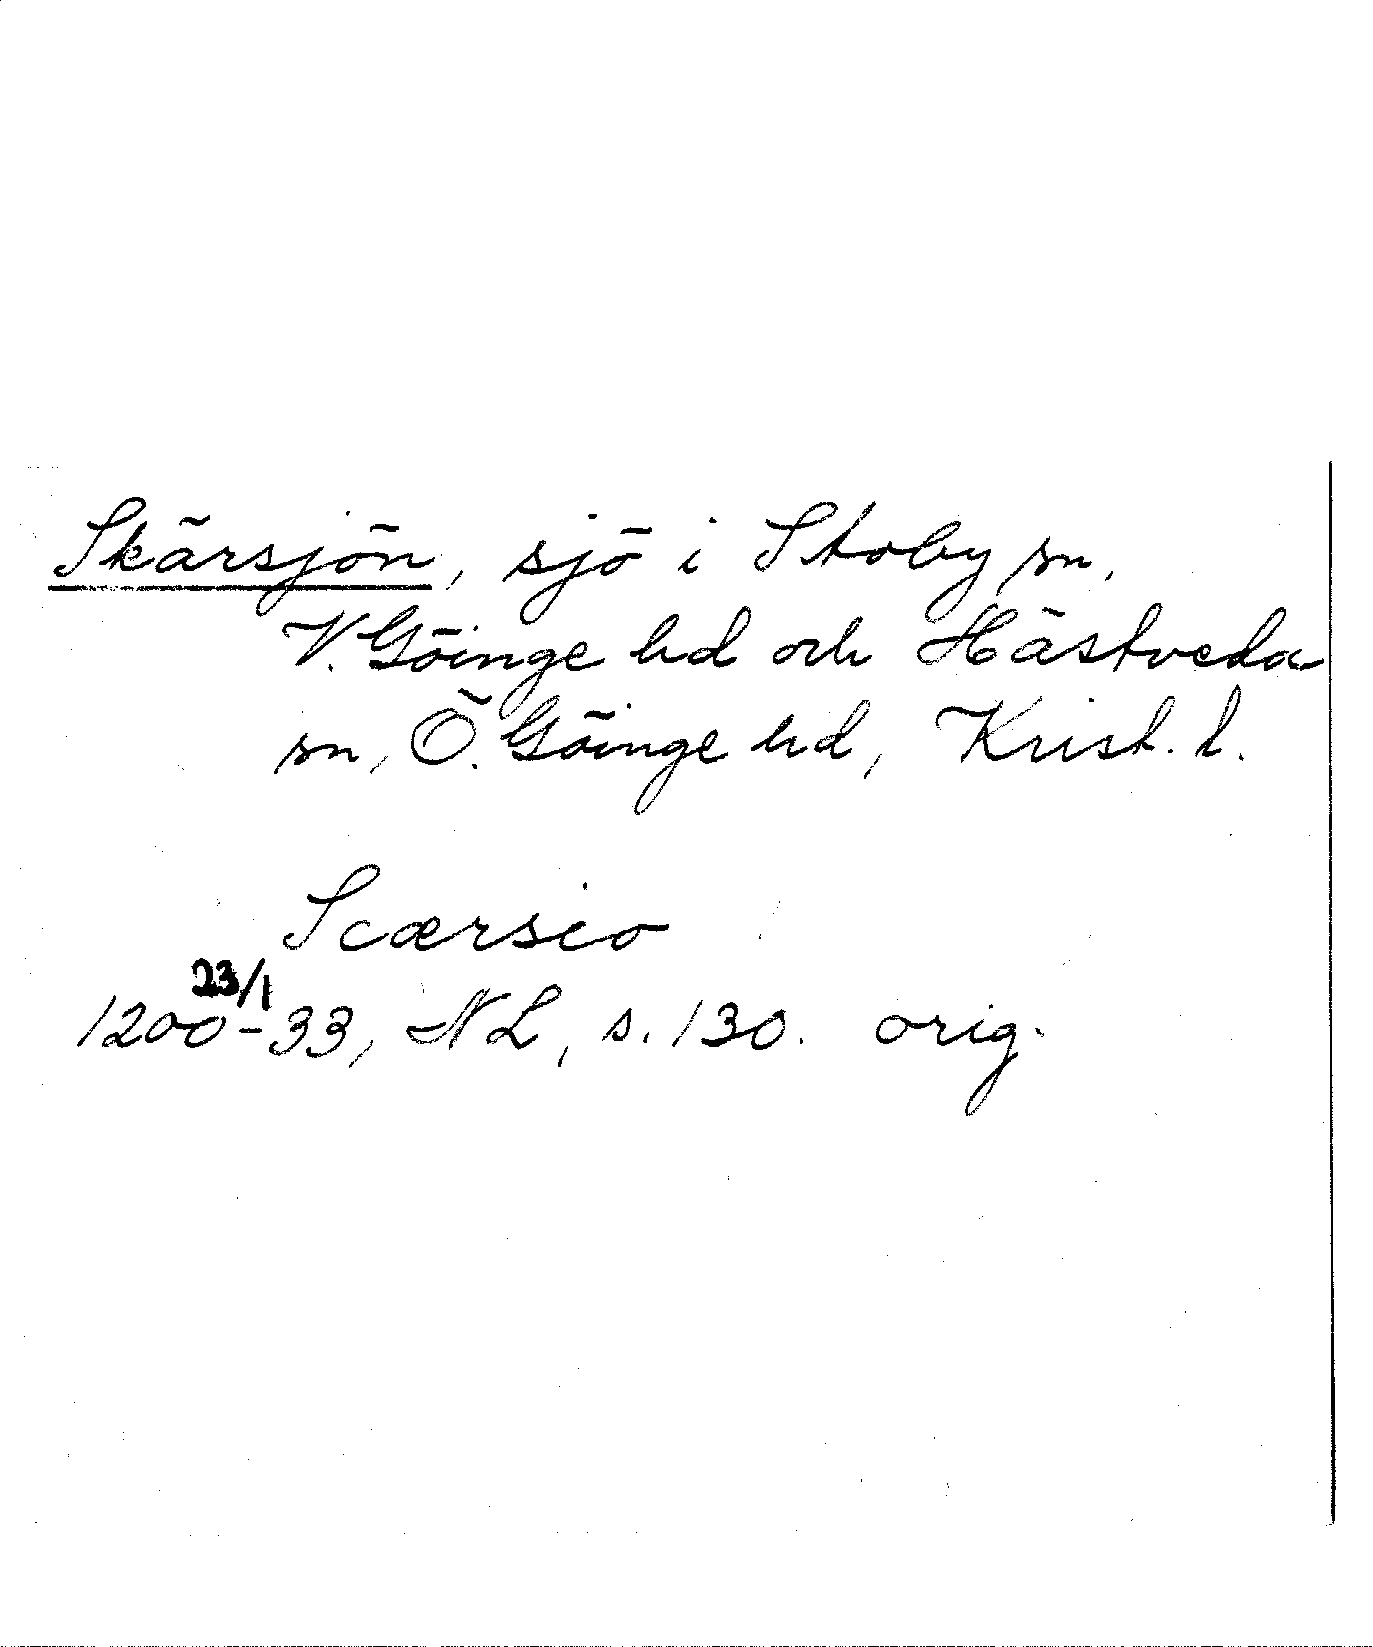 Skärsjön, sjö i Stoby sn,
V. Göinge hd och Hästveda
sn, Ö. Göinge hd, Krist. l.
Scærsio
23/1
1200-33, NL, s. 130. orig.